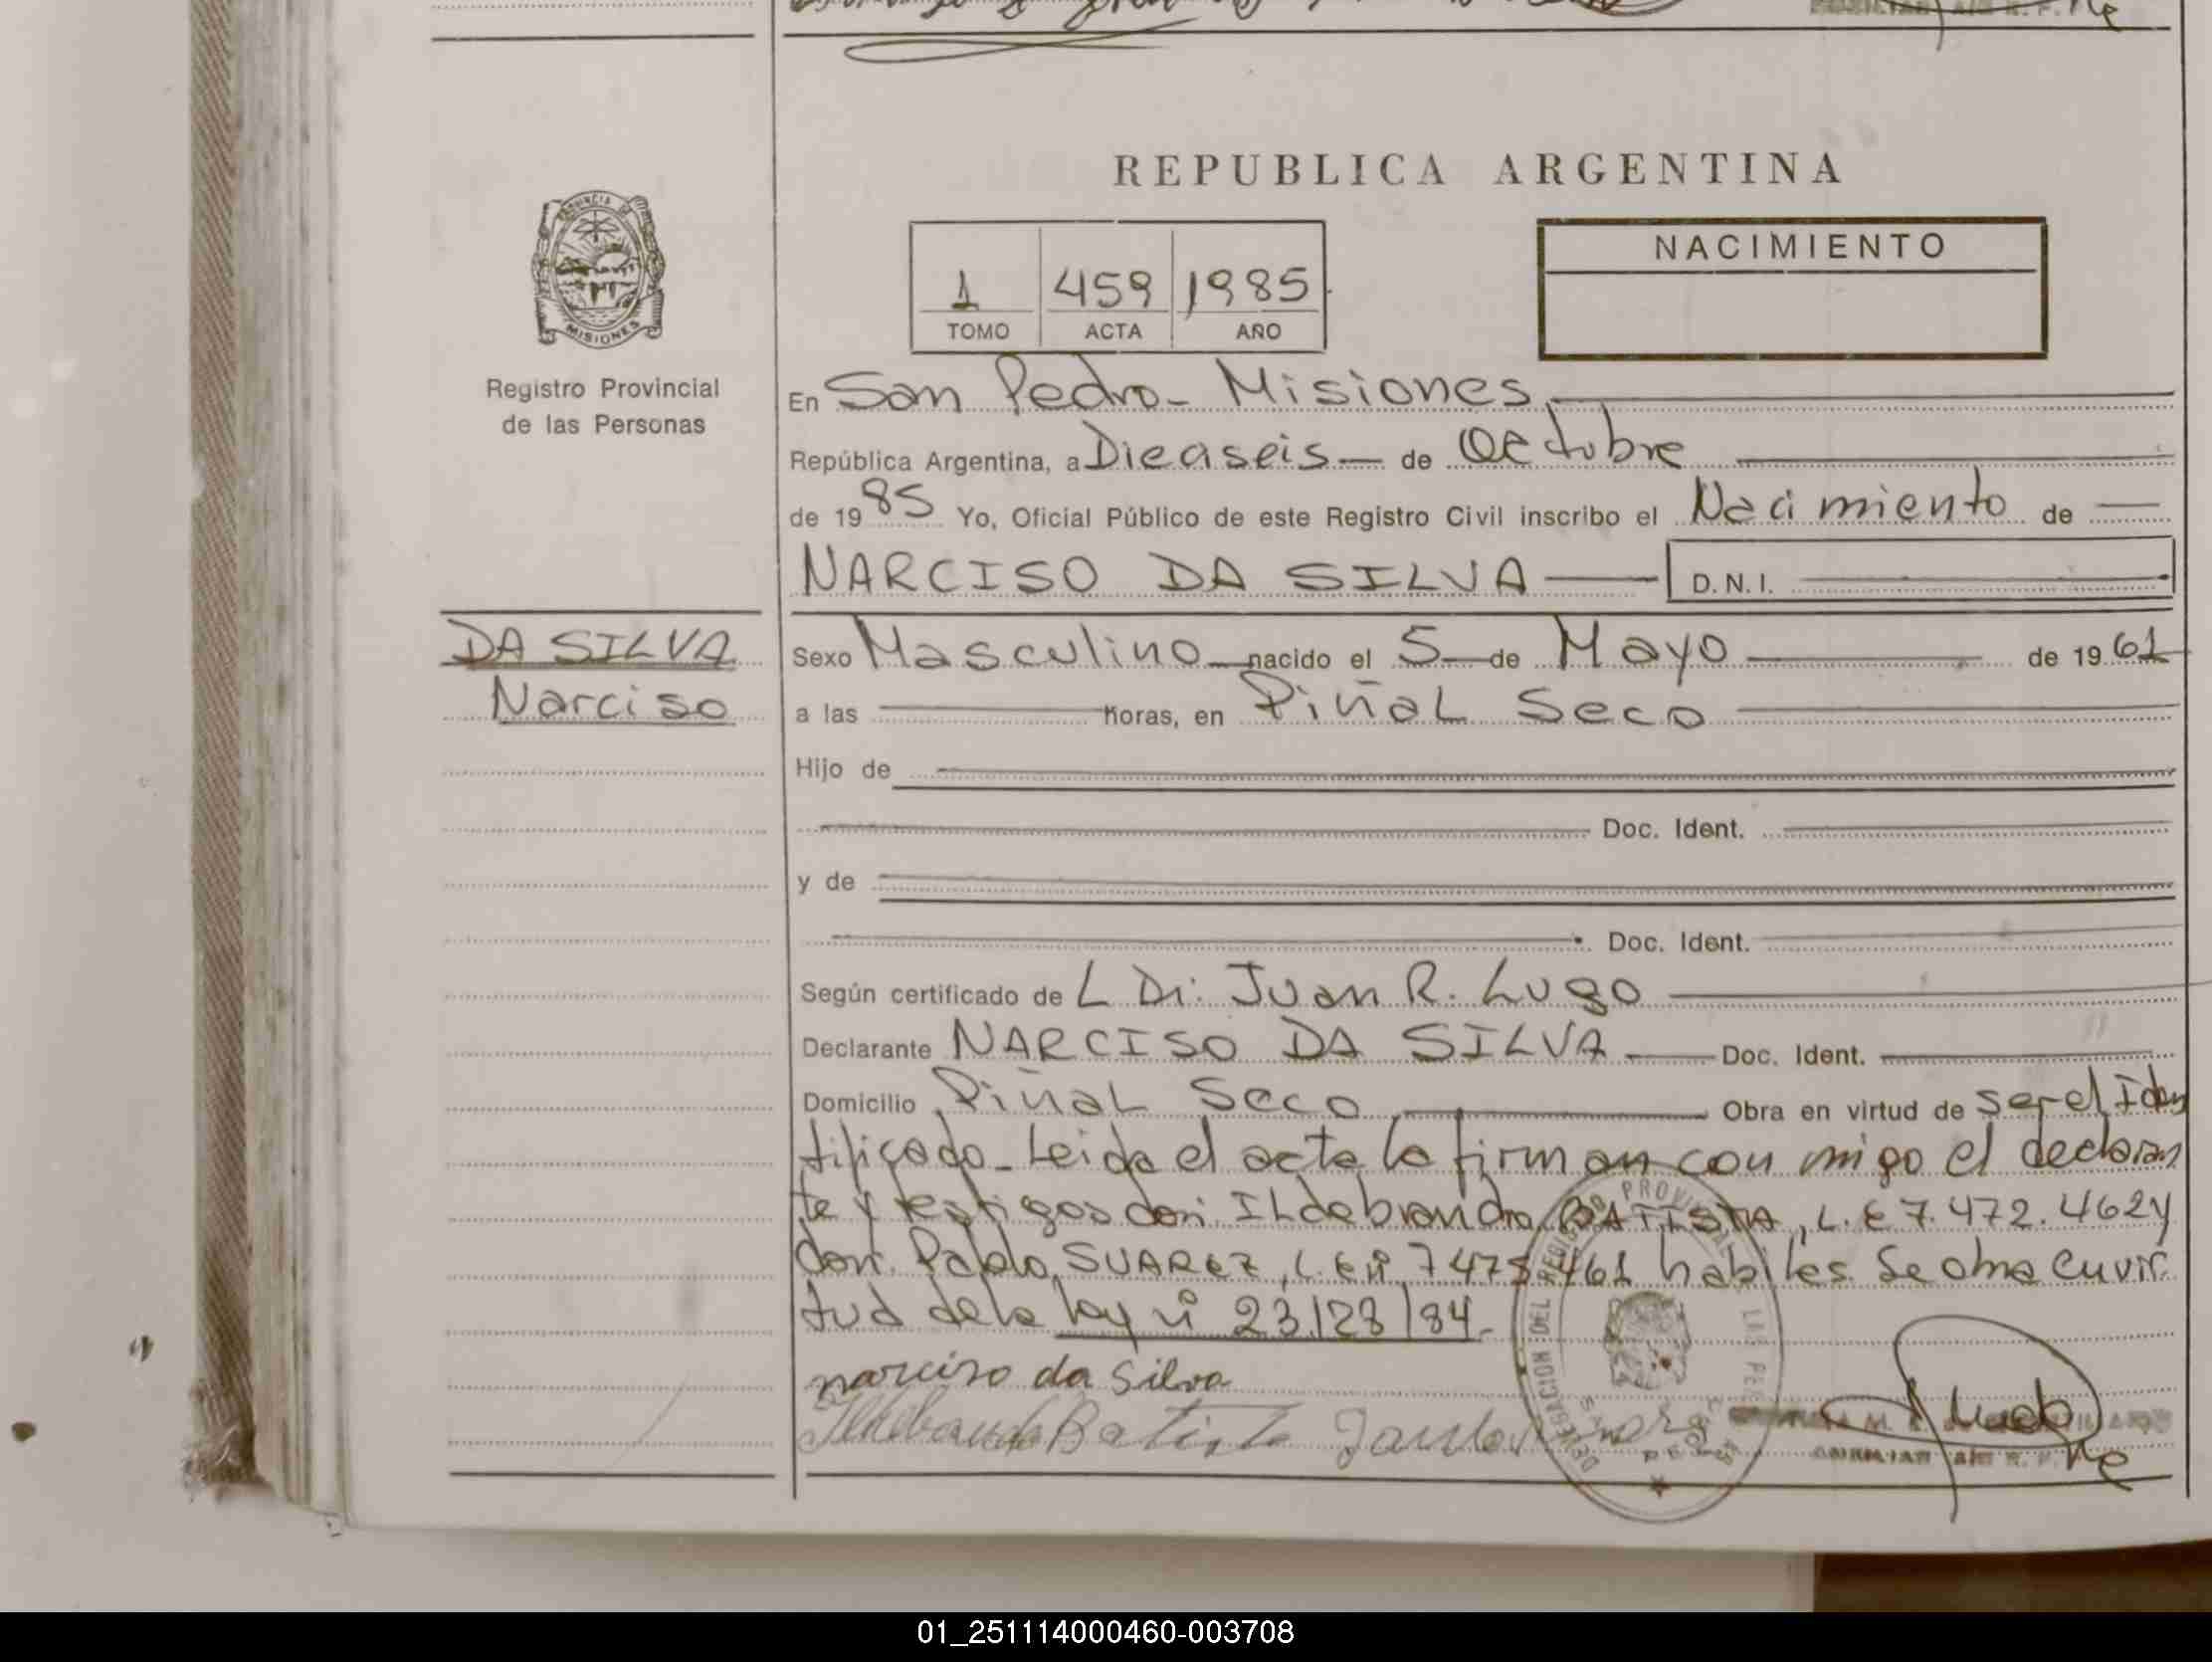 REPUBLICA ARGENTINA
PROVINCIA DE
MISIONES
Registro Provincial
de las Personas
1 459 1985
TOMO ACTA AÑO
NACIMIENTO
En San Pedro - Misiones
República Argentina, a Dieaseis - de Octubre
de 1985 Yo, Oficial Público de este Registro Civil inscribo el Nacimiento de
NARCISO DA SILVA D.N.I.
DA SILVA
Narciso
Sexo Masculino nacido el 5 de Mayo de 1961
a las horas, en Piñal Seco
Hijo de
Doc. Ident.
y de
Doc. Ident.
Según certificado de L Dr. Juan R. Lugo
Declarante NARCISO DA SILVA Doc. Ident.
Domicilio Piñal Seco Obra en virtud de ser el Iden
tificado - Leida el acta la firman con migo el declaran
te y testigos don Ildebrando BATISTA, L.E 7.472.462 y
don Pablo SUAREZ, L.E Nº 7475461 habiles Se obra en vir
tud de la ley nº 23.128/84.-
narciso da silva
Batista
DELEGACION DEL REGISTRO PROVINCIAL DE LAS PERSONAS
01_251114000460-003708